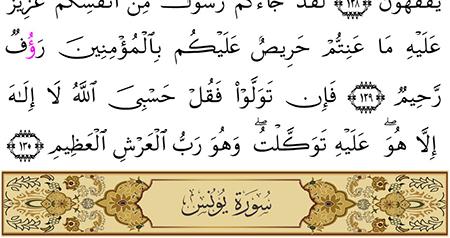 يَفْقَهُونَ ١٢٨ لَقَدْ جَاءَكُمْ رَسُولٌ مِنْ أَنفُسِكُمْ عَزِيزٌ
عَلَيْهِ مَا عَنِتُّمْ حَرِيصٌ عَلَيْكُم بِالْمُؤْمِنِينَ رَؤُفٌ
رَّحِيمٌ ١٢٩ فَإِن تَوَلَّوْا۟ فَقُلْ حَسْبِىَ ٱللَّهُ لَا إِلَـٰهَ
إِلَّا هُوَۖ عَلَيْهِ تَوَكَّلْتُۖ وَهُوَ رَبُّ الْعَرْشِ الْعَظِيمِ ١٣٠
سُورَةُ يُونُسَ